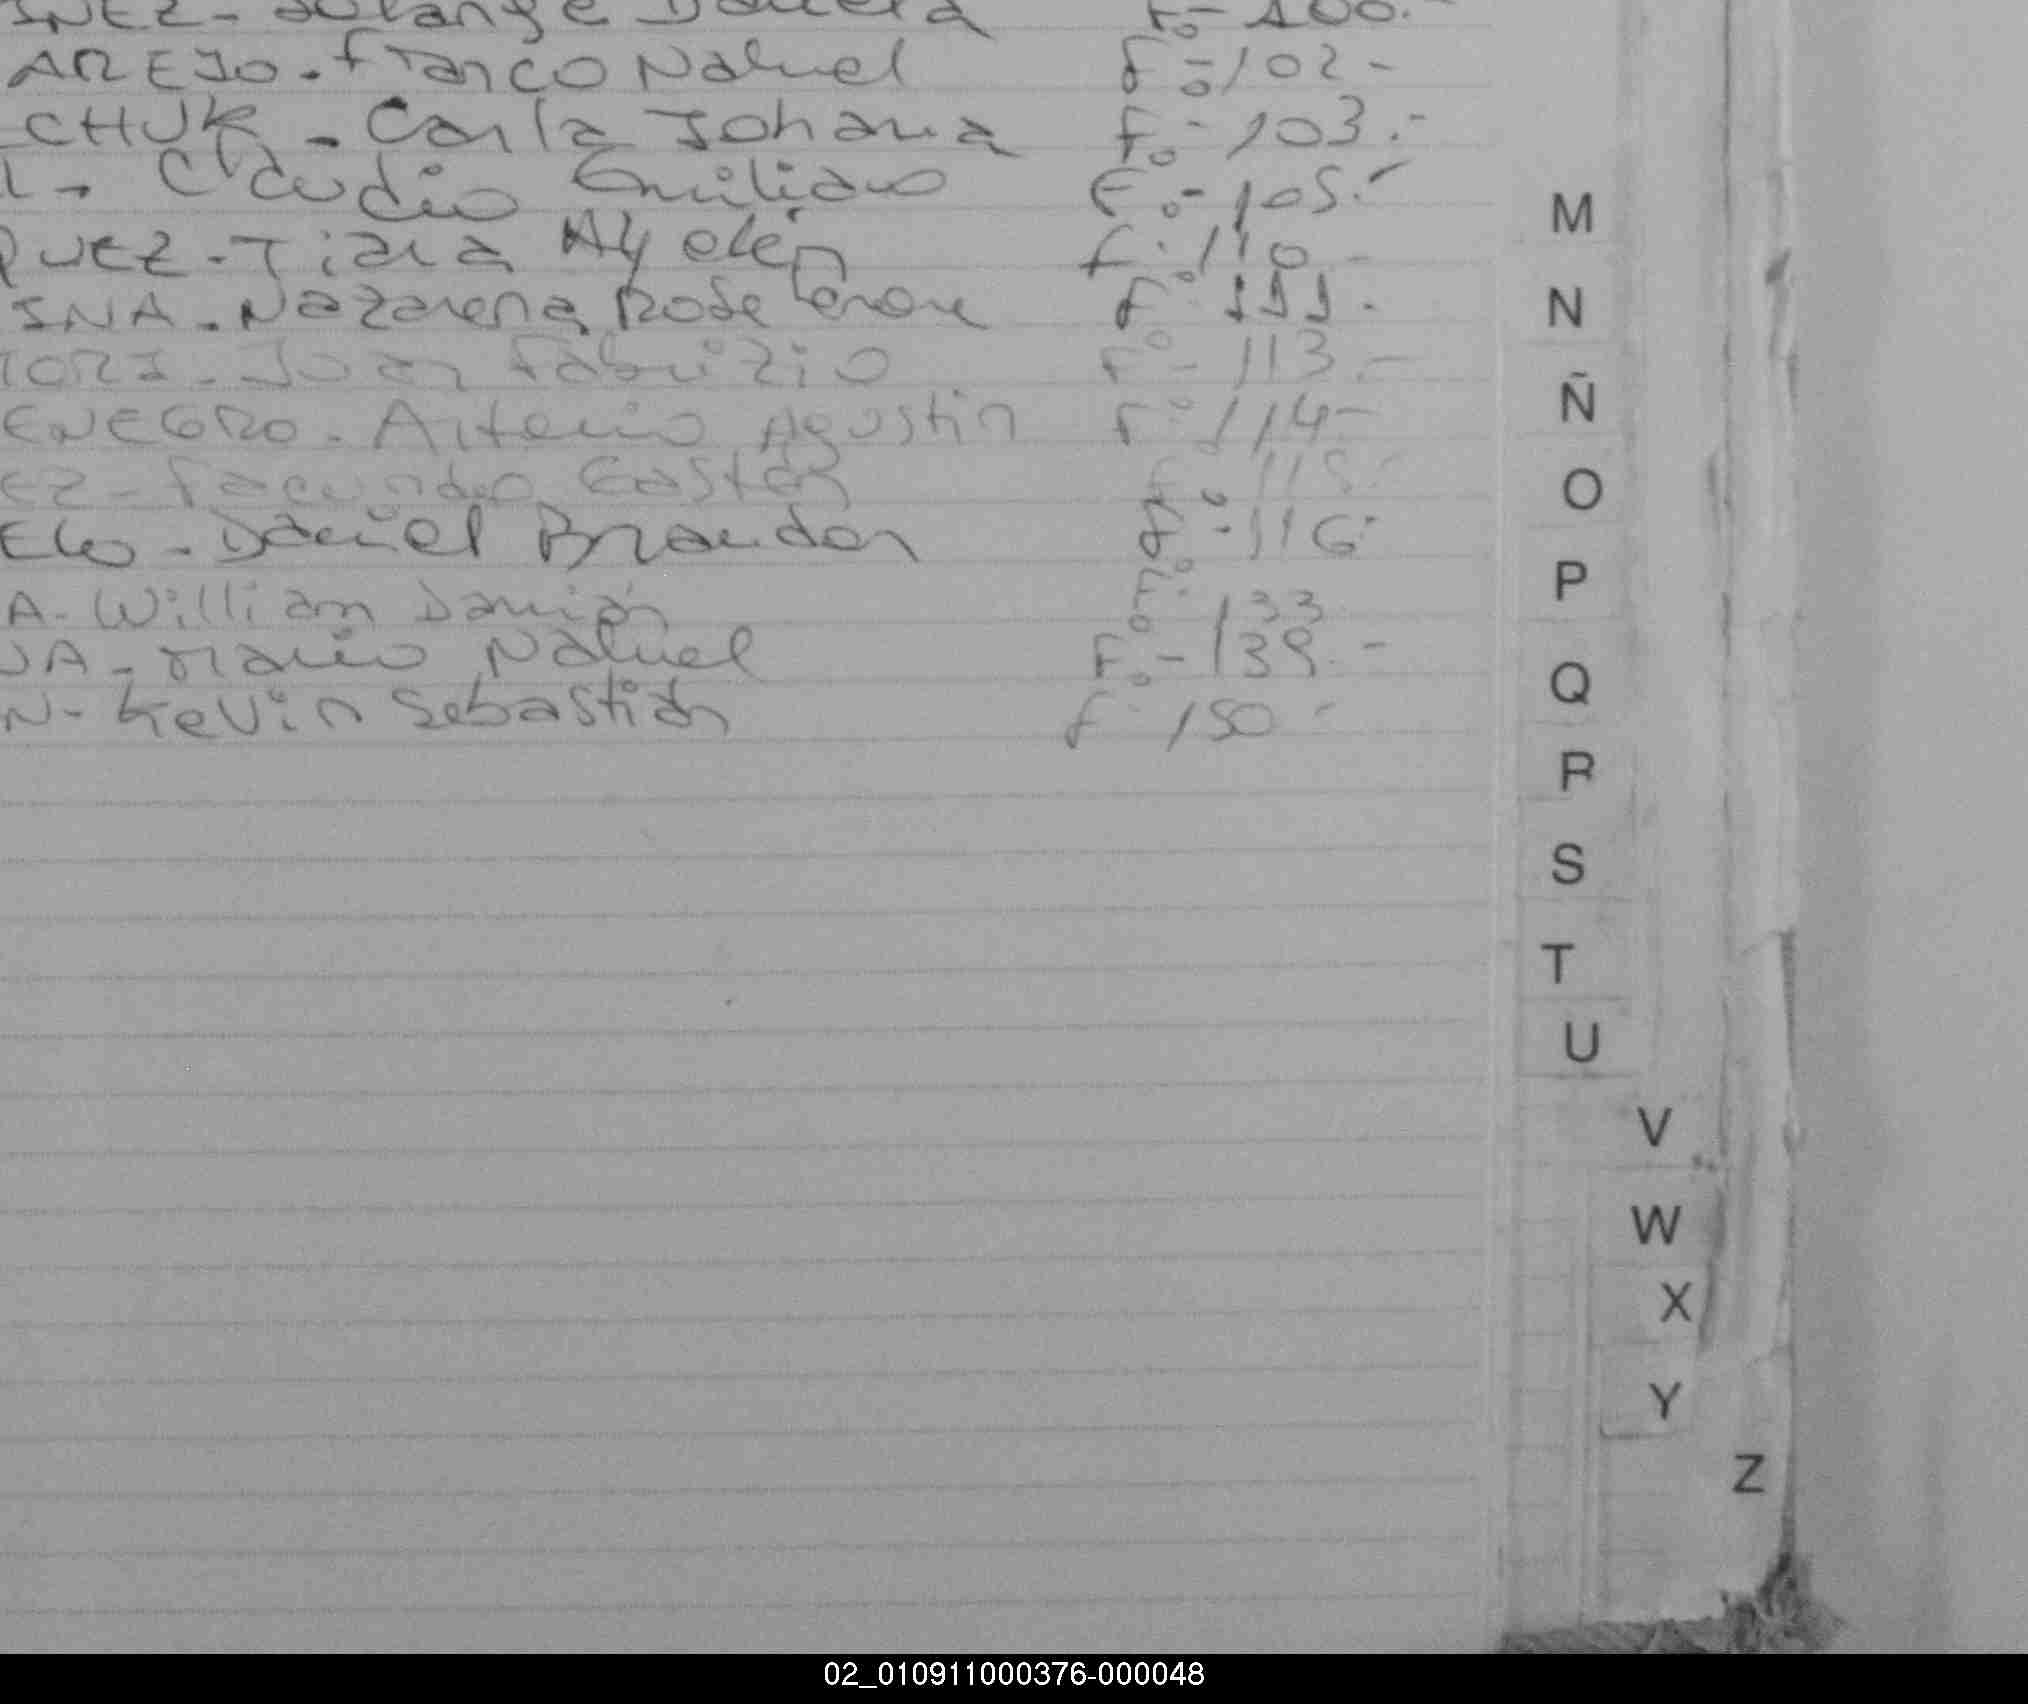 INEZ- Solange Daniela F°- 100.-
AREJO. Franco Nahuel F°- 102-
CHUK - Carla Johana F°- 103.-
L- Claudio Emiliano F°- 105.-
QUEZ-Tiara Ayelén F° 110-
INA- Nazarena Rose F° 111.
MORI- Joan Fabrizio F°- 113-
ENEGRO- Artemio Agustín F° 114-
EZ- Facundo Gastón F° 115-
ELO- Daniel Brandon F°- 116-
A- William Damián F°- 133
NA- Mario Nahuel F°- 139.-
N- Kevin Sebastián F° 150.-
M
N
Ñ
O
P
Q
R
S
T
U
V
W
X
Y
Z
02_010911000376-000048